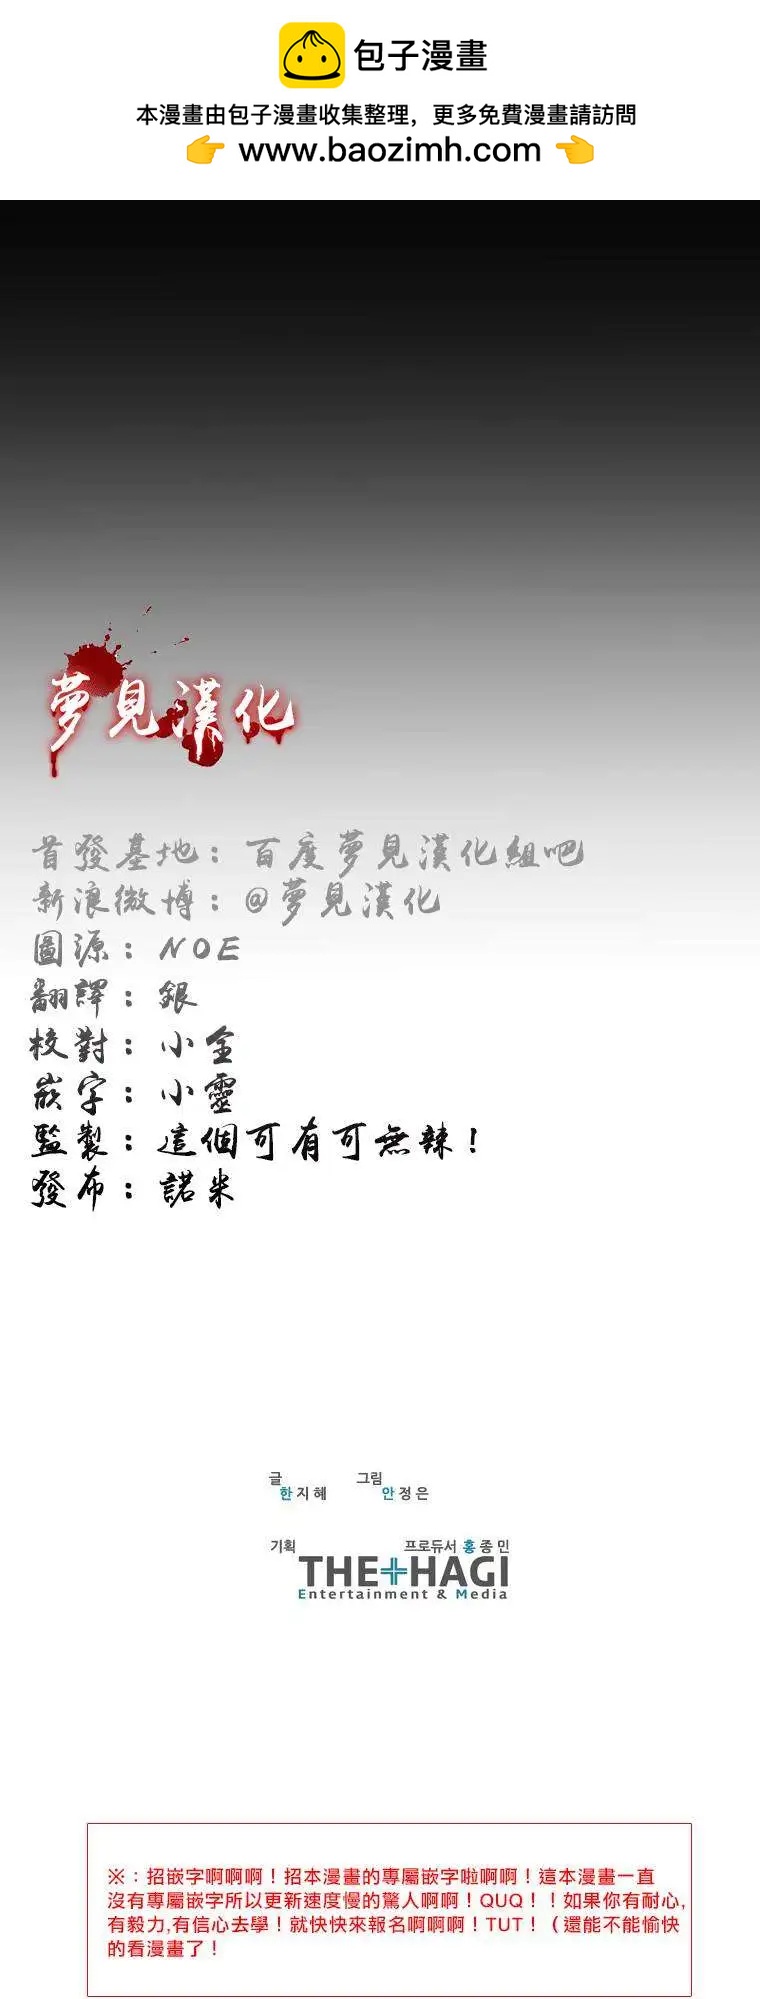 包子漫畫
本漫畫由包子漫畫收集整理，更多免費漫畫請訪問
👉 www.baozimh.com 👈
夢見漢化
首發基地：百度夢見漢化組吧
新浪微博：@夢見漢化
圖源：NOE
翻譯：銀
校對：小全
嵌字：小靈
監製：這個可有可無辣！
發布：諾米
글 그림
한지혜 안정은
기획 프로듀서 홍종민
THE HAGI
Entertainment & Media
※：招嵌字啊啊啊！招本漫畫的專屬嵌字啦啊啊！這本漫畫一直
沒有專屬嵌字所以更新速度慢的驚人啊啊！QUQ！！如果你有耐心,
有毅力,有信心去學！就快快來報名啊啊啊！TUT！（還能不能愉快
的看漫畫了！